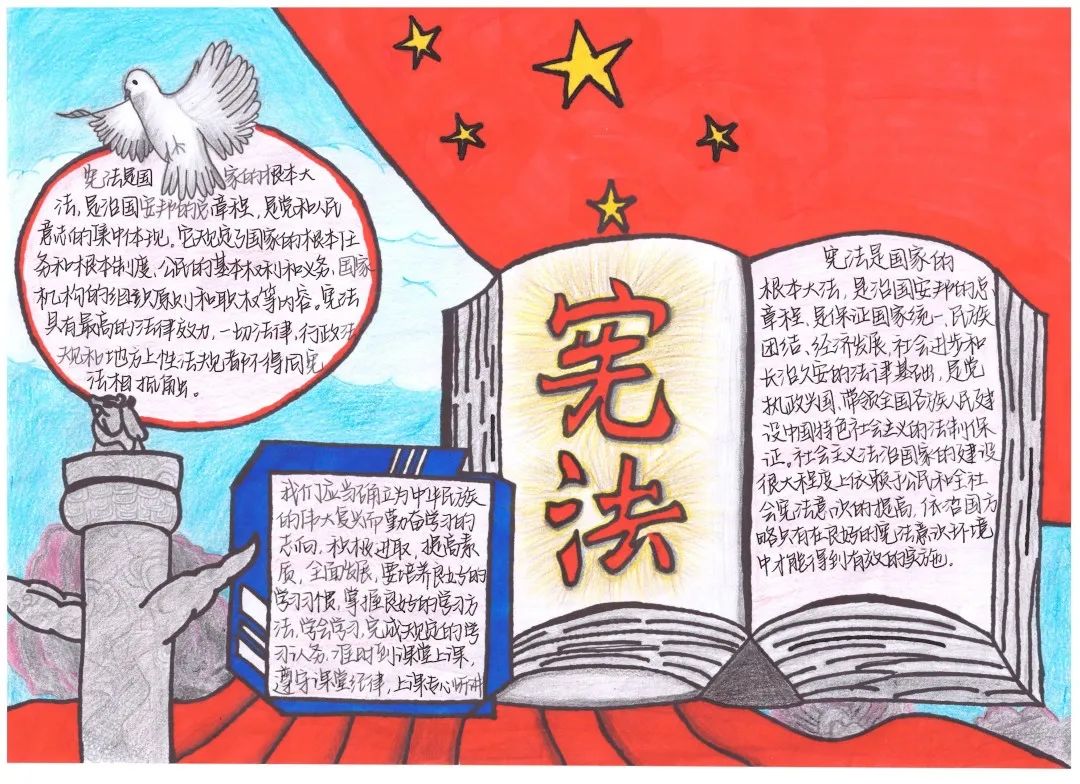 宪法是国家的根本大
法，是治国安邦的总章程，是党和人民
意志的集中体现。它规定了国家的根本任
务和根本制度、公民的基本权利和义务、国家
机构的组织原则和职权等内容。宪法
具有最高的法律效力，一切法律，行政法
规和地方上性法规都不得同宪
法相抵触。
我们应当确立为中华民族
的伟大复兴而勤奋学习的
志向，积极进取，提高素
质，全面发展，要培养良好的
学习习惯，掌握良好的学习方
法，学会学习，完成规定的学
习认务，准时到课堂上课，
遵守课堂纪律，上课专心听讲
宪法
宪法是国家的
根本大法，是治国安邦的总
章程、是保证国家统一、民族
团结、经济发展，社会进步和
长治久安的法律基础，是党
执政兴国、带领全国各族人民建
设中国特色社会主义的法制保
证。社会主义法治国家的建设
很大程度上依赖于公民和全社
会宪法意识的提高，依治国方
略只有在良好的宪法意识环境
中才能得到有效的实施。